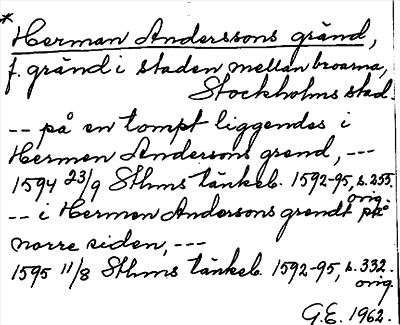 * Herman Anderssons gränd,
f. gränd i staden mellan broarna,
Stockholms stad.
-- på en tompt liggendes i
Hermen Andersons grend, ---
1594 23/9 Sthms tänkeb. 1592-95, s. 255.
orig.
-- i Hermen Andersons grendt på
norre siden, ---
1595 11/8 Sthms tänkeb. 1592-95, s. 332.
orig.
G.E. 1962.